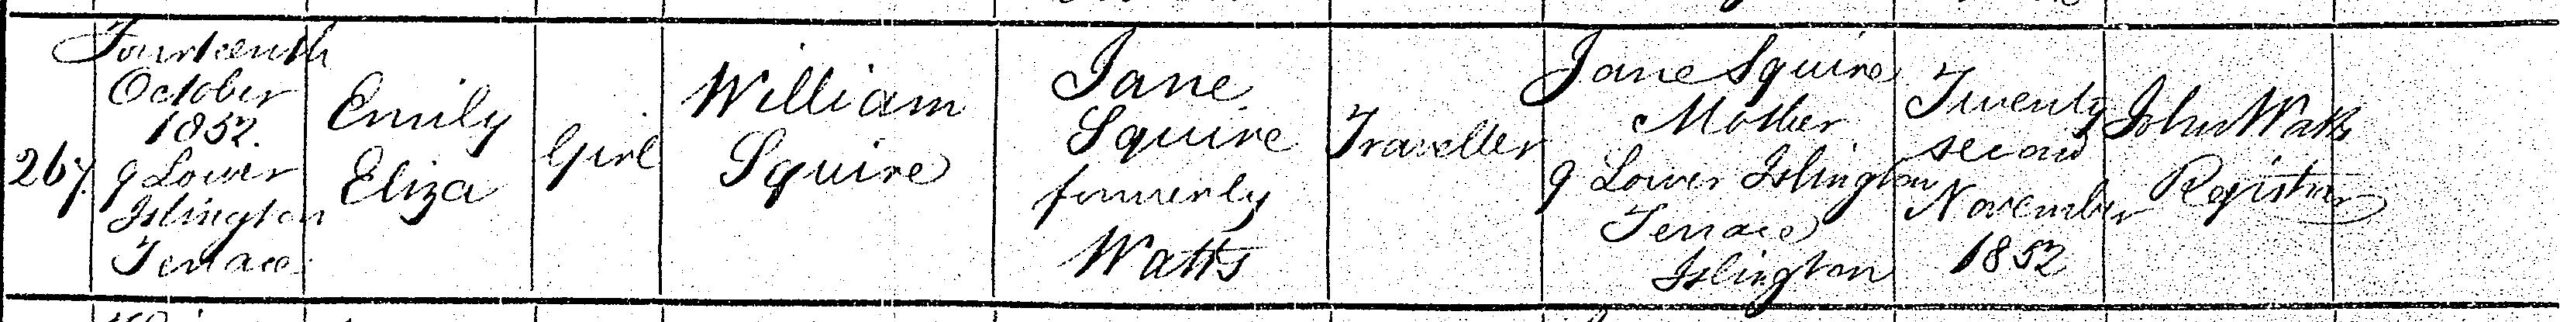 267.
Fourteenth
October
1852.
9 Lower
Islington
Terrace
Emily
Eliza
Girl
William
Squire
Jane
Squire
formerly
Watts
Traveller
Jane Squire
Mother
9 Lower Islington
Terrace
Islington
Twenty
second
November
1852
John Watts
Registrar